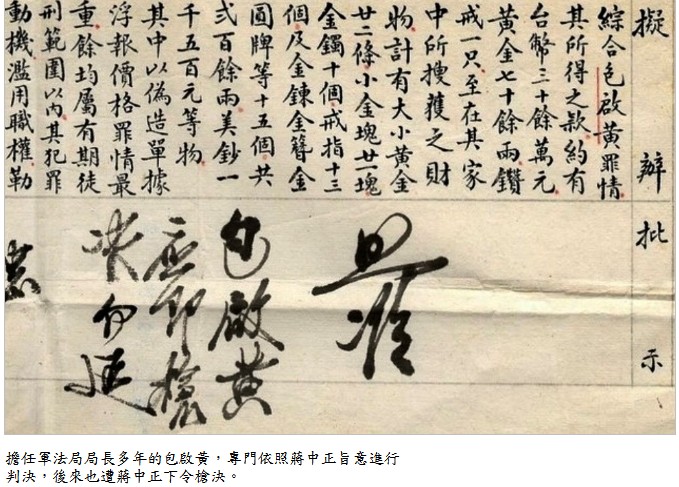 擬辦
綜合包啟黃罪情
其所得之款約有
台幣三十餘萬元
黃金七十餘兩鑽
戒一只至在其家
中所搜獲之財
物計有大小黃金
廿二條小金塊廿一塊
金鐲十個戒指十三
個及金鍊金簪金
圓牌等十五個共
弍百餘兩美鈔一
千五百元等物
其中以偽造單據
浮報價格罪情最
重餘均屬有期徒
刑範圍以內其犯罪
動機濫用職權勒
批示
照准
包啟黃
應即槍
決勿延
擔任軍法局局長多年的包啟黃，專門依照蔣中正旨意進行
判決，後來也遭蔣中正下令槍決。